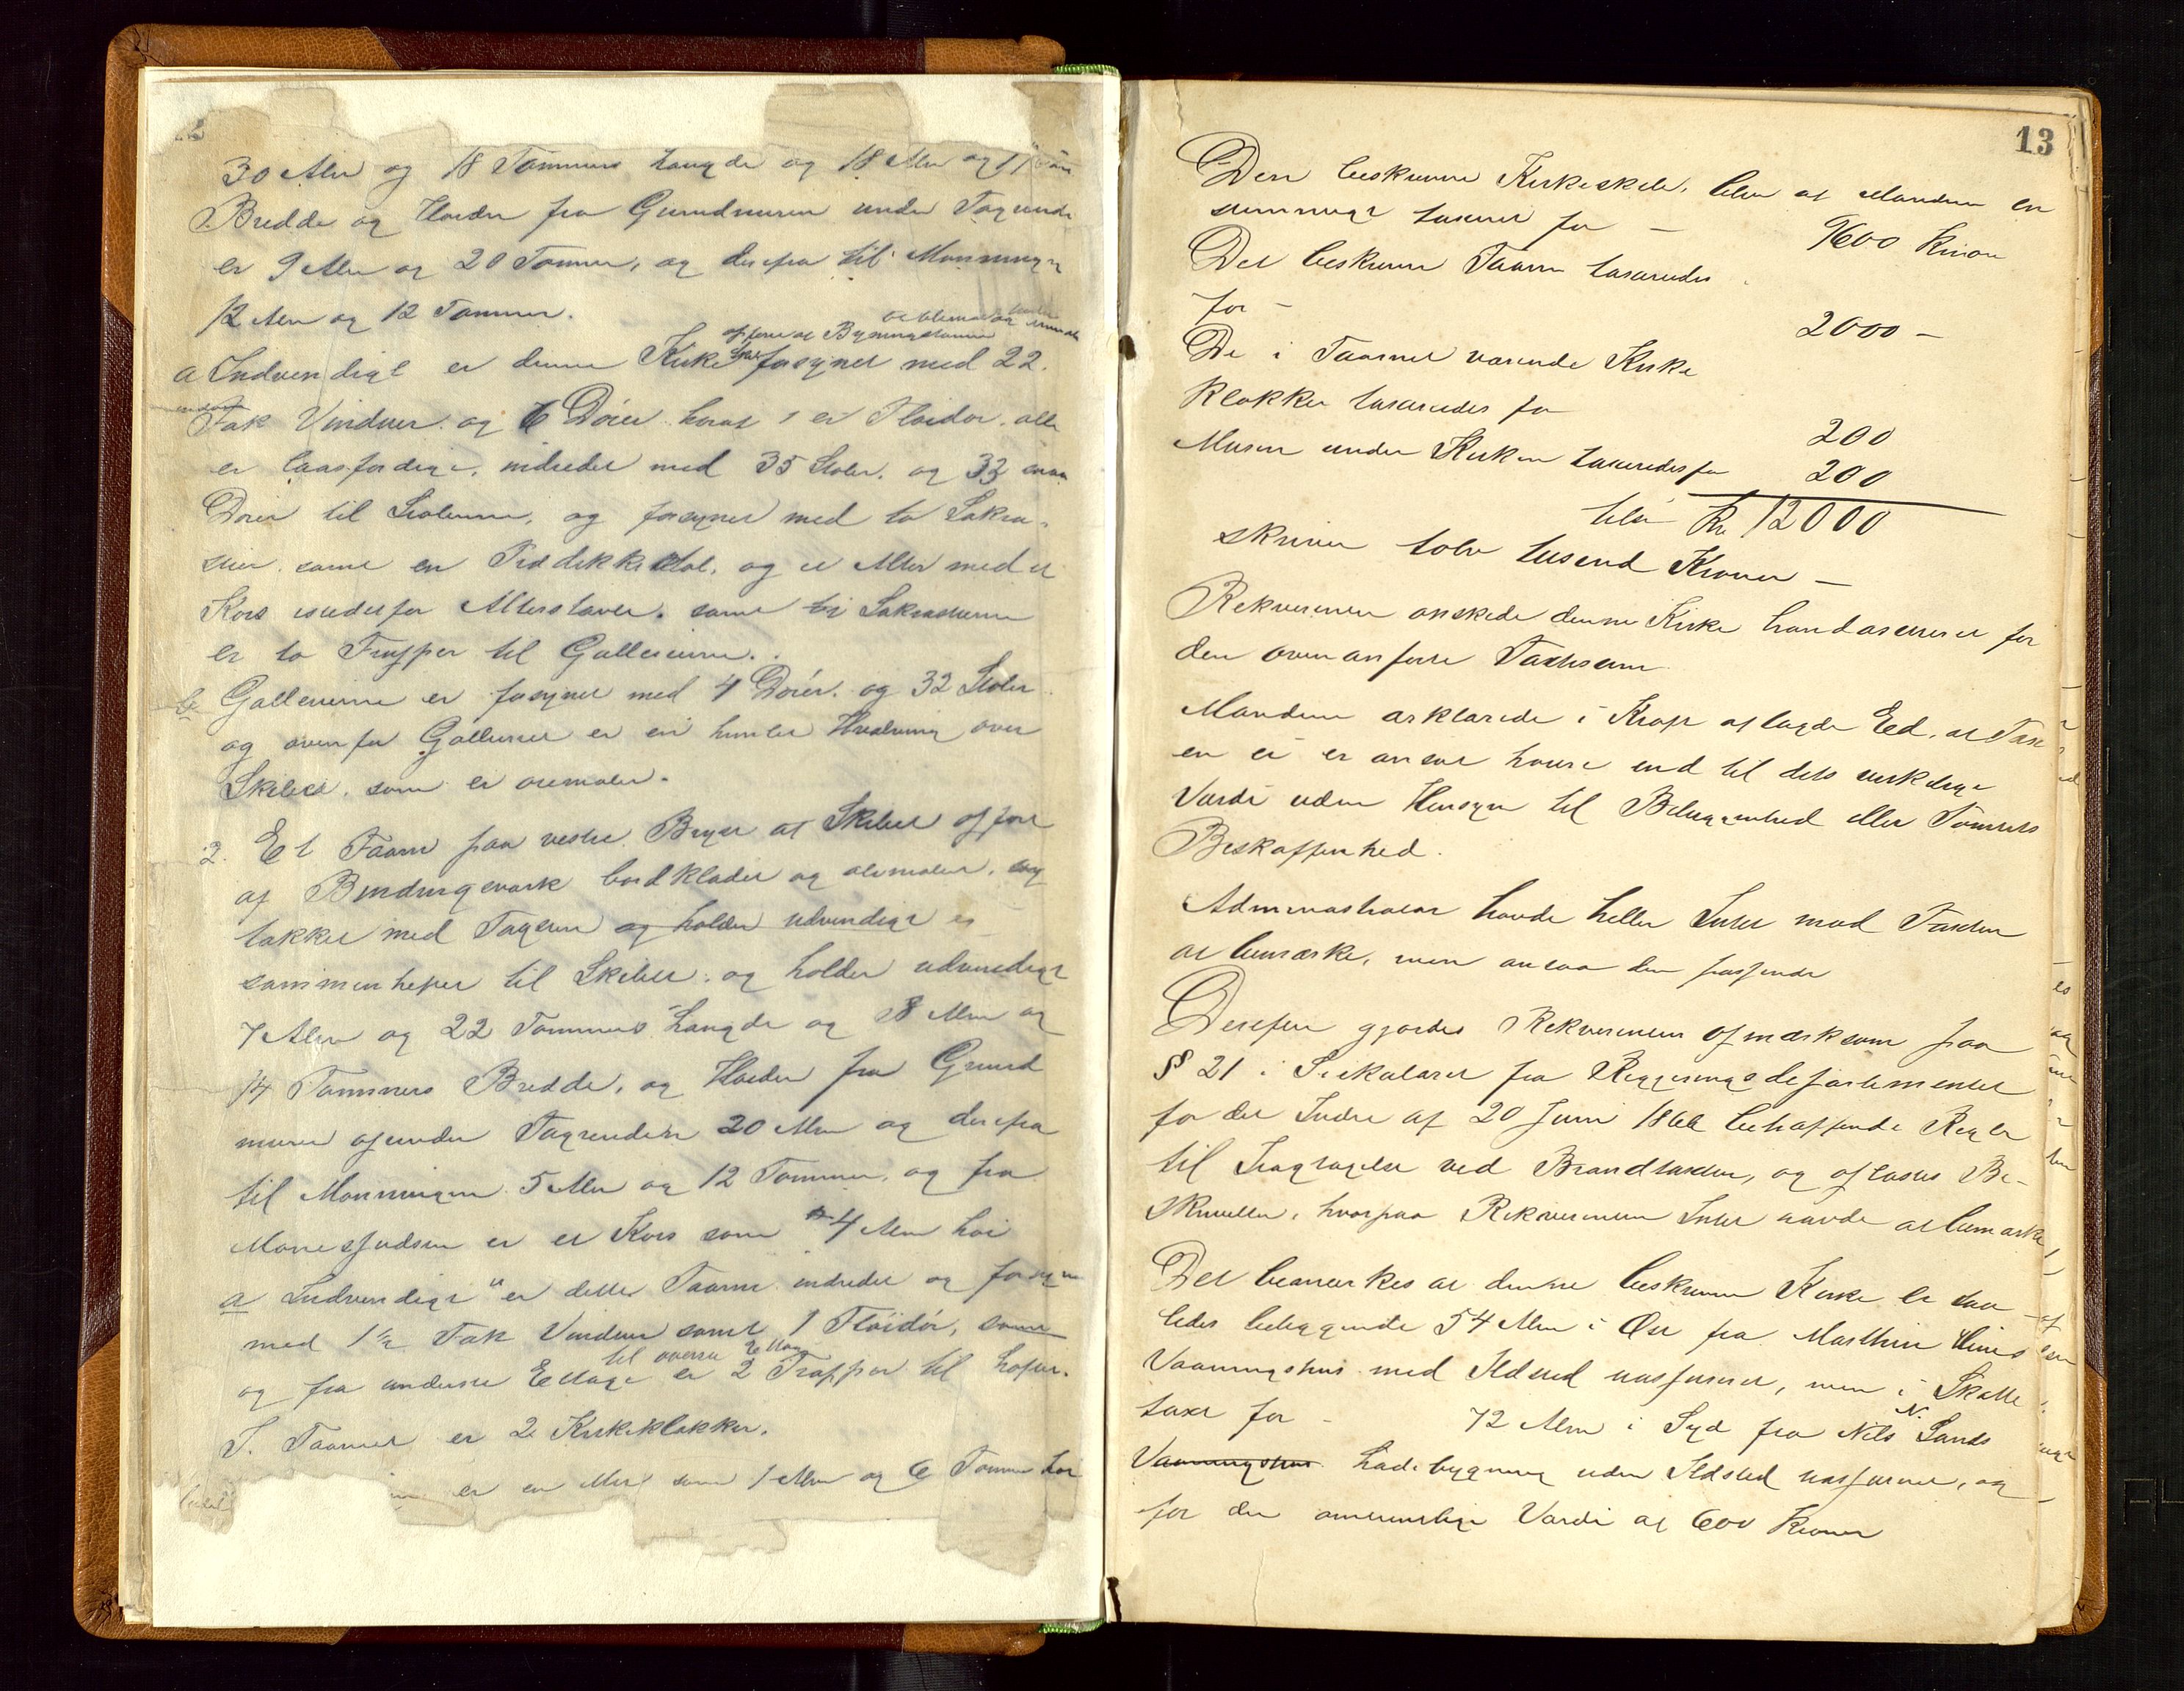 30 Alen og 18 Tommers Længde og 18 Alen og 11
Bredde og Høiden fra Grundmuren under Tagrende
er 9 Alen og 20 Tommer, og derefra til Mønningen
12 Alen og 12 Tommer.
opført af Bygningstømmer
a Indvendigt er denne Kirke forsynet med 22
Fak Vinduer og 6 Dører hvoraf 1 er Fløidør, alle
er laasfærdige, indredet med 35 Stoler, og 33
Dører til Stolerne, og forsynet med to Sakri-
stier, samt en Prædikkestol, og et Alter med et
Kors istedetfor Altertavle, samt i Sakristierne
er to Trapper til Gallerierne.
b Gallerierne er forsynet med 4 Dører og 32 Stoler
og ovenfor Galleriet er en himlet Hvælving over
Skibet, som er oliemalet.
2. Et Taarn paa vestre Side af Skibet opført
af Bindingsværk bordklædet og oliemalet, og
takket med Tagsten og holder udvendigt er
sammenheftet til Skibet, og holder udvendigt
7 Alen og 22 Tommers Længde og 8 Alen og
14 Tommers Bredde, og Høiden fra Grund
muren op under Tagrenden 20 Alen og derefra
til Mønningen 5 Alen og 12 Tommer, og fra
Mønespidsen er et Kors som 4 Alen høi
a Indvendigt er dette Taarn indredet og forsynet
med 1 1/2 Fak Vinduer samt 1 Fløidør, samt
til øverste Etage
og fra underste Etage er 2 Trapper til
I Taarnet er 2 Kirkeklokker.
er en Mur som 1 Alen og 6 Tommer høi
13
Den beskrevne Kirkeskib, blev af Mændene en
stemmigt taxeret for — 9600 Kroner
Det beskrevne Taarn taxeredes
for — 2000 —
De i Taarnet værende Kirke
klokker taxeredes for 200
Muren under Kirken taxeredes for 200
tils Kr 12000
skriver tolv tusend Kroner —
Rekvirenten ønskede denne Kirke brandassureret for
den ovenanførte Taxtsum
Mændene erklærede i Kraft aflagde Eed, at Tax
en ei er ansat høiere end til dets virkelige
Værdi uden Hensyn til Beliggenhed eller Tomtets
Beskaffenhed.
Administrator havde heller Intet mod Taxten
at bemærke, men ansaa den passende
Derefter gjordes Rekvirenten opmærksom paa
§ 21 i Sirkulæret fra Regjeringsdepartementet
for det Indre af 20 Juni 1866 betræffende Regler
til Iagtagelse ved Brandtaxter, og oplæstes Be-
skrivelsen, hvorpaa Rekvirenten Intet havde at bemærke
Det bemærkes at denne beskrevne Kirke er saa
ledes beliggende 54 Alen i Øst fra Marthin
Vaaningshus med Ildsted uassureret, men i Skatte
taxt for — 72 Alen i Syd fra Nils N. Sands
Vaaningshus Ladebygning uden Ildsted uassureret, og
for den omtrentlige Værdi af 600 Kroner